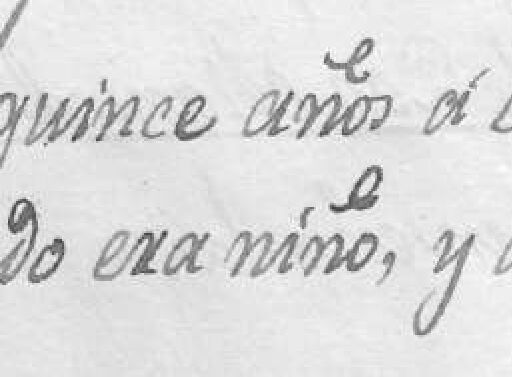 quince años á
do era niño, y